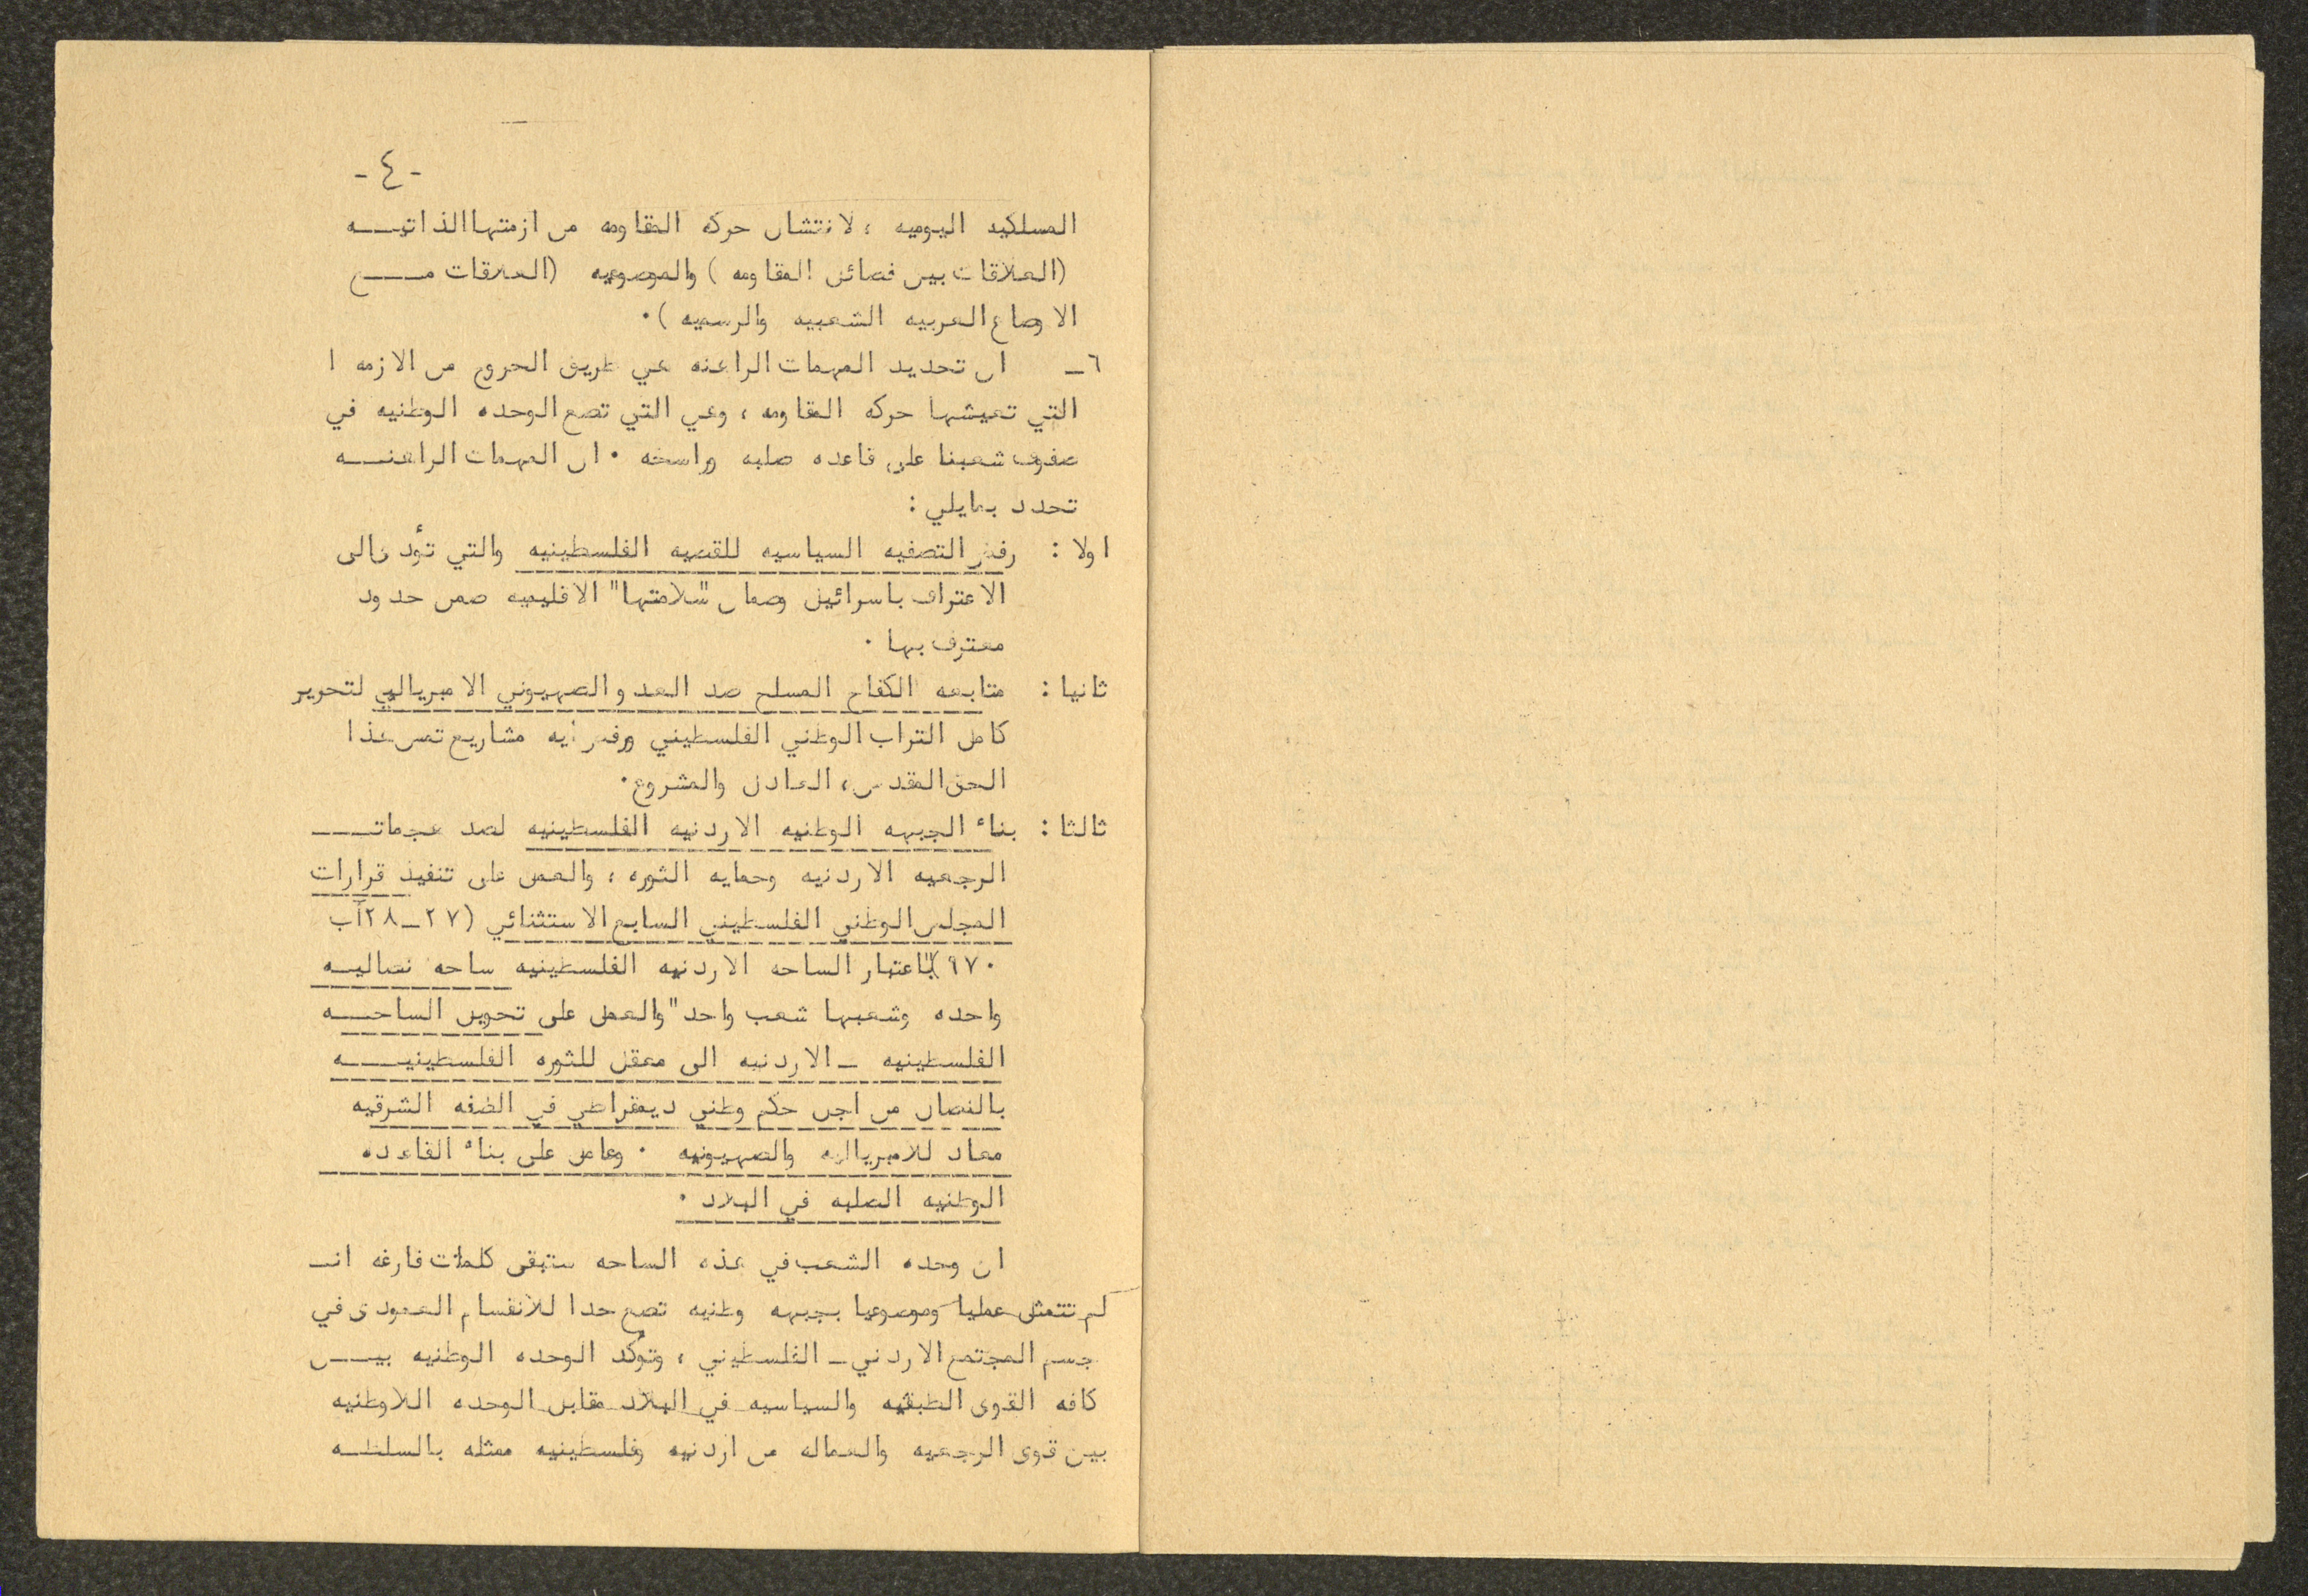 -٤-
المسلكيه اليوميه ، لانتشال حركه المقاومه من ازمتها الذاتيـــه
(العلاقات بين فصائل المقاومه ) والموضوعيه (العلاقات مـــع
الاوضاع العربيه الشعبيه والرسميه )٠
٦ــ ان تحديد المهمات الراهنه هي طريق الخروج من الازمه ا
التي تعيشها حركه المقاومه ، وهي التي تضع الوحده الوطنيه في
صفوف شعبنا على قاعده صلبه وراسخه ٠ ان المهمات الراهنـــه
تحدد بمايلي :
اولا : رفض التصفيه السياسيه للقضيه الفلسطينيه والتي تؤدى الى
الاعتراف باسرائيل وضمان "سلامتها" الاقليميه ضمن حدود
معترف بها ٠
ثانيا : متابعه الكفاح المسلح ضد العدو الصهيوني الامبريالي لتحرير
كامل التراب الوطني الفلسطيني ورفض أيه مشاريع تمس هذا
الحق المقدس ، العادل والمشروع ٠
ثالثا : بناء الجبهه الوطنيه الاردنيه الفلسطينيه لصد هجمات ـــ
الرجعيه الاردنيه وحمايه الثوره ، والعمل على تنفيذ قرارات
المجلس الوطني الفلسطيني السابع الاستثنائي (٢٧ــ٢٨آب
٩٧٠)"باعتبار الساحه الاردنيه الفلسطينيه ساحه نضاليـه
واحده وشعبها شعب واحد" والعمل على تحويل الساحـــه
الفلسطينيه ــ الاردنيه الى معقل للثوره الفلسطينيـــه
بالنضال من اجل حكم وطني ديمقراطي في الضفه الشرقيه
معاد للامبرياليه والصهيونيه ٠ وعامل على بناء القاعده
الوطنيه الصلبه في البلاد ٠
ان وحده الشعب في هذه الساحه ستبقى كلمات فارغه انــ
لم تتمثل عمليا وموضوعيا بجبهه وطنيه تضع حدا للانقسام العمودى في
جسم المجتمع الاردني ــ الفلسطيني ، وتؤكد الوحده الوطنيه بيـــن
كافه القوى الطبقيه والسياسيه في البلاد مقابل الوحده اللاوطنيه
بين قوى الرجعيه والعماله من اردنيه وفلسطينيه ممثله بالسلطــه